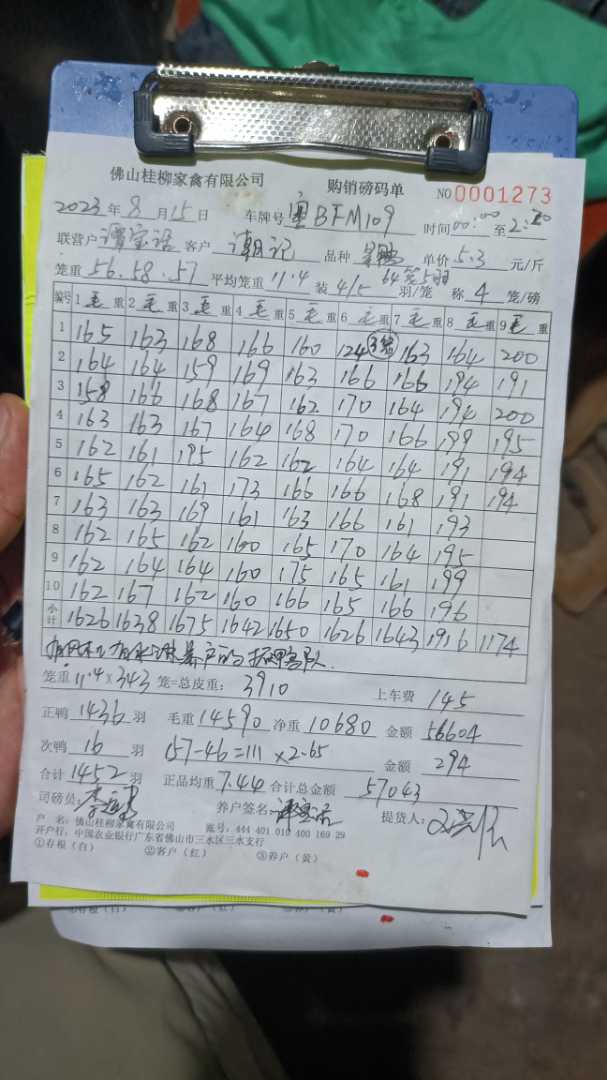 佛山桂柳家禽有限公司 购销磅码单 NO 0001273
2023年8月15日 车牌号 粤BFM109 时间00:00至2:20
联营户 谭宝语 客户 潮记 品种 单价5.3元/斤
笼重56.58.57 平均笼重11.4 装4/5羽/笼 称4笼/磅 64笼5羽
编号 1毛重 2毛重 3毛重 4毛重 5毛重 6毛重 7毛重 8毛重 9毛重
1 165 163 168 166 160 124 3笼 163 164 200
2 164 164 159 169 163 166 166 194 191
3 158 166 168 167 162 170 164 194 200
4 163 163 167 164 168 170 166 199 195
5 162 161 195 162 162 164 164 191 194
6 165 162 161 173 166 166 168 191 194
7 163 163 169 161 163 166 161 193
8 162 165 162 160 165 170 164 195
9 162 164 164 160 175 165 161 199
10 162 167 162 160 166 165 166 196
小计 1626 1638 1675 1642 1650 1626 1643 1916 1174
笼重11.4×343笼=总皮重：3910 上车费 145
正鸭1436羽 毛重14590 净重10680 金额56604
次鸭16羽 157-46=111×2.65 金额294
合计1452羽 正品均重7.44 合计总金额57043
司磅员： 养户签名： 提货人：
户 名：佛山桂柳家禽有限公司 账号：444 401 010 400 169 29
开户行：中国农业银行广东省佛山市三水区三水支行
①存根（白） ②客户（红） ③养户（黄）